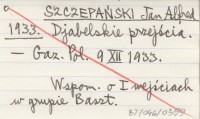 SZCZEPAŃSKI Jan Alfred
1933. Djabelskie przejścia.
— Gaz. Pol. 9 XII 1933.
Wspom. o I wejściach
w grupie Baszt.